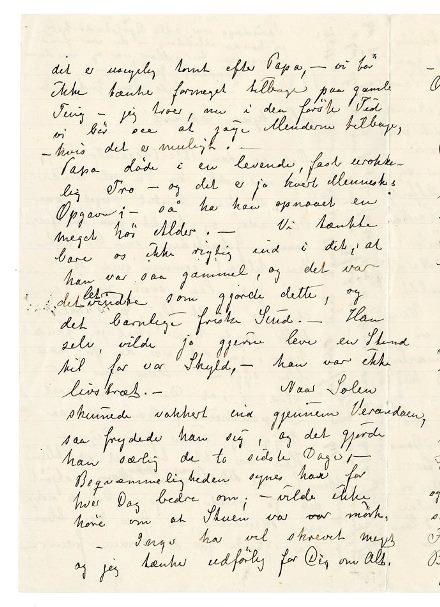 det er usigelig tomt efter Papa, – vi bør
ikke tænke formeget tilbage paa gamle
Ting – jeg troer, nu i den første Tid
vi bør see at jage Minderne tilbage,
– hvis det er muligt! –
Papa døde i en levende, fast urokke-
lig Tro – og det er jo hvert Menneskes
Opgave; – så ha han opnaaet en
meget høi Alder. – Vi tænkte
bare os ikke rigtig ind i det, at
han var saa gammel, og det var
det som gjorde dette, og
det barnlige friske Sind. – Han
selv, vilde jo gjerne leve en Stund
til for vor Skyld, – han var ikke
livstræt. – Naar Solen
skinnede vakkert ind gjennem Verandaen,
saa frydede han sig, og det gjorde
han særlig de to sidste Dage, –
Beqvæmmeligheden synes han for
hver Dag bedre om; – vilde ikke
høre om at Stuen var var mørk.
– Inga ha vel skrevet meget
og jeg tænker udførlig for Dig om Alt.